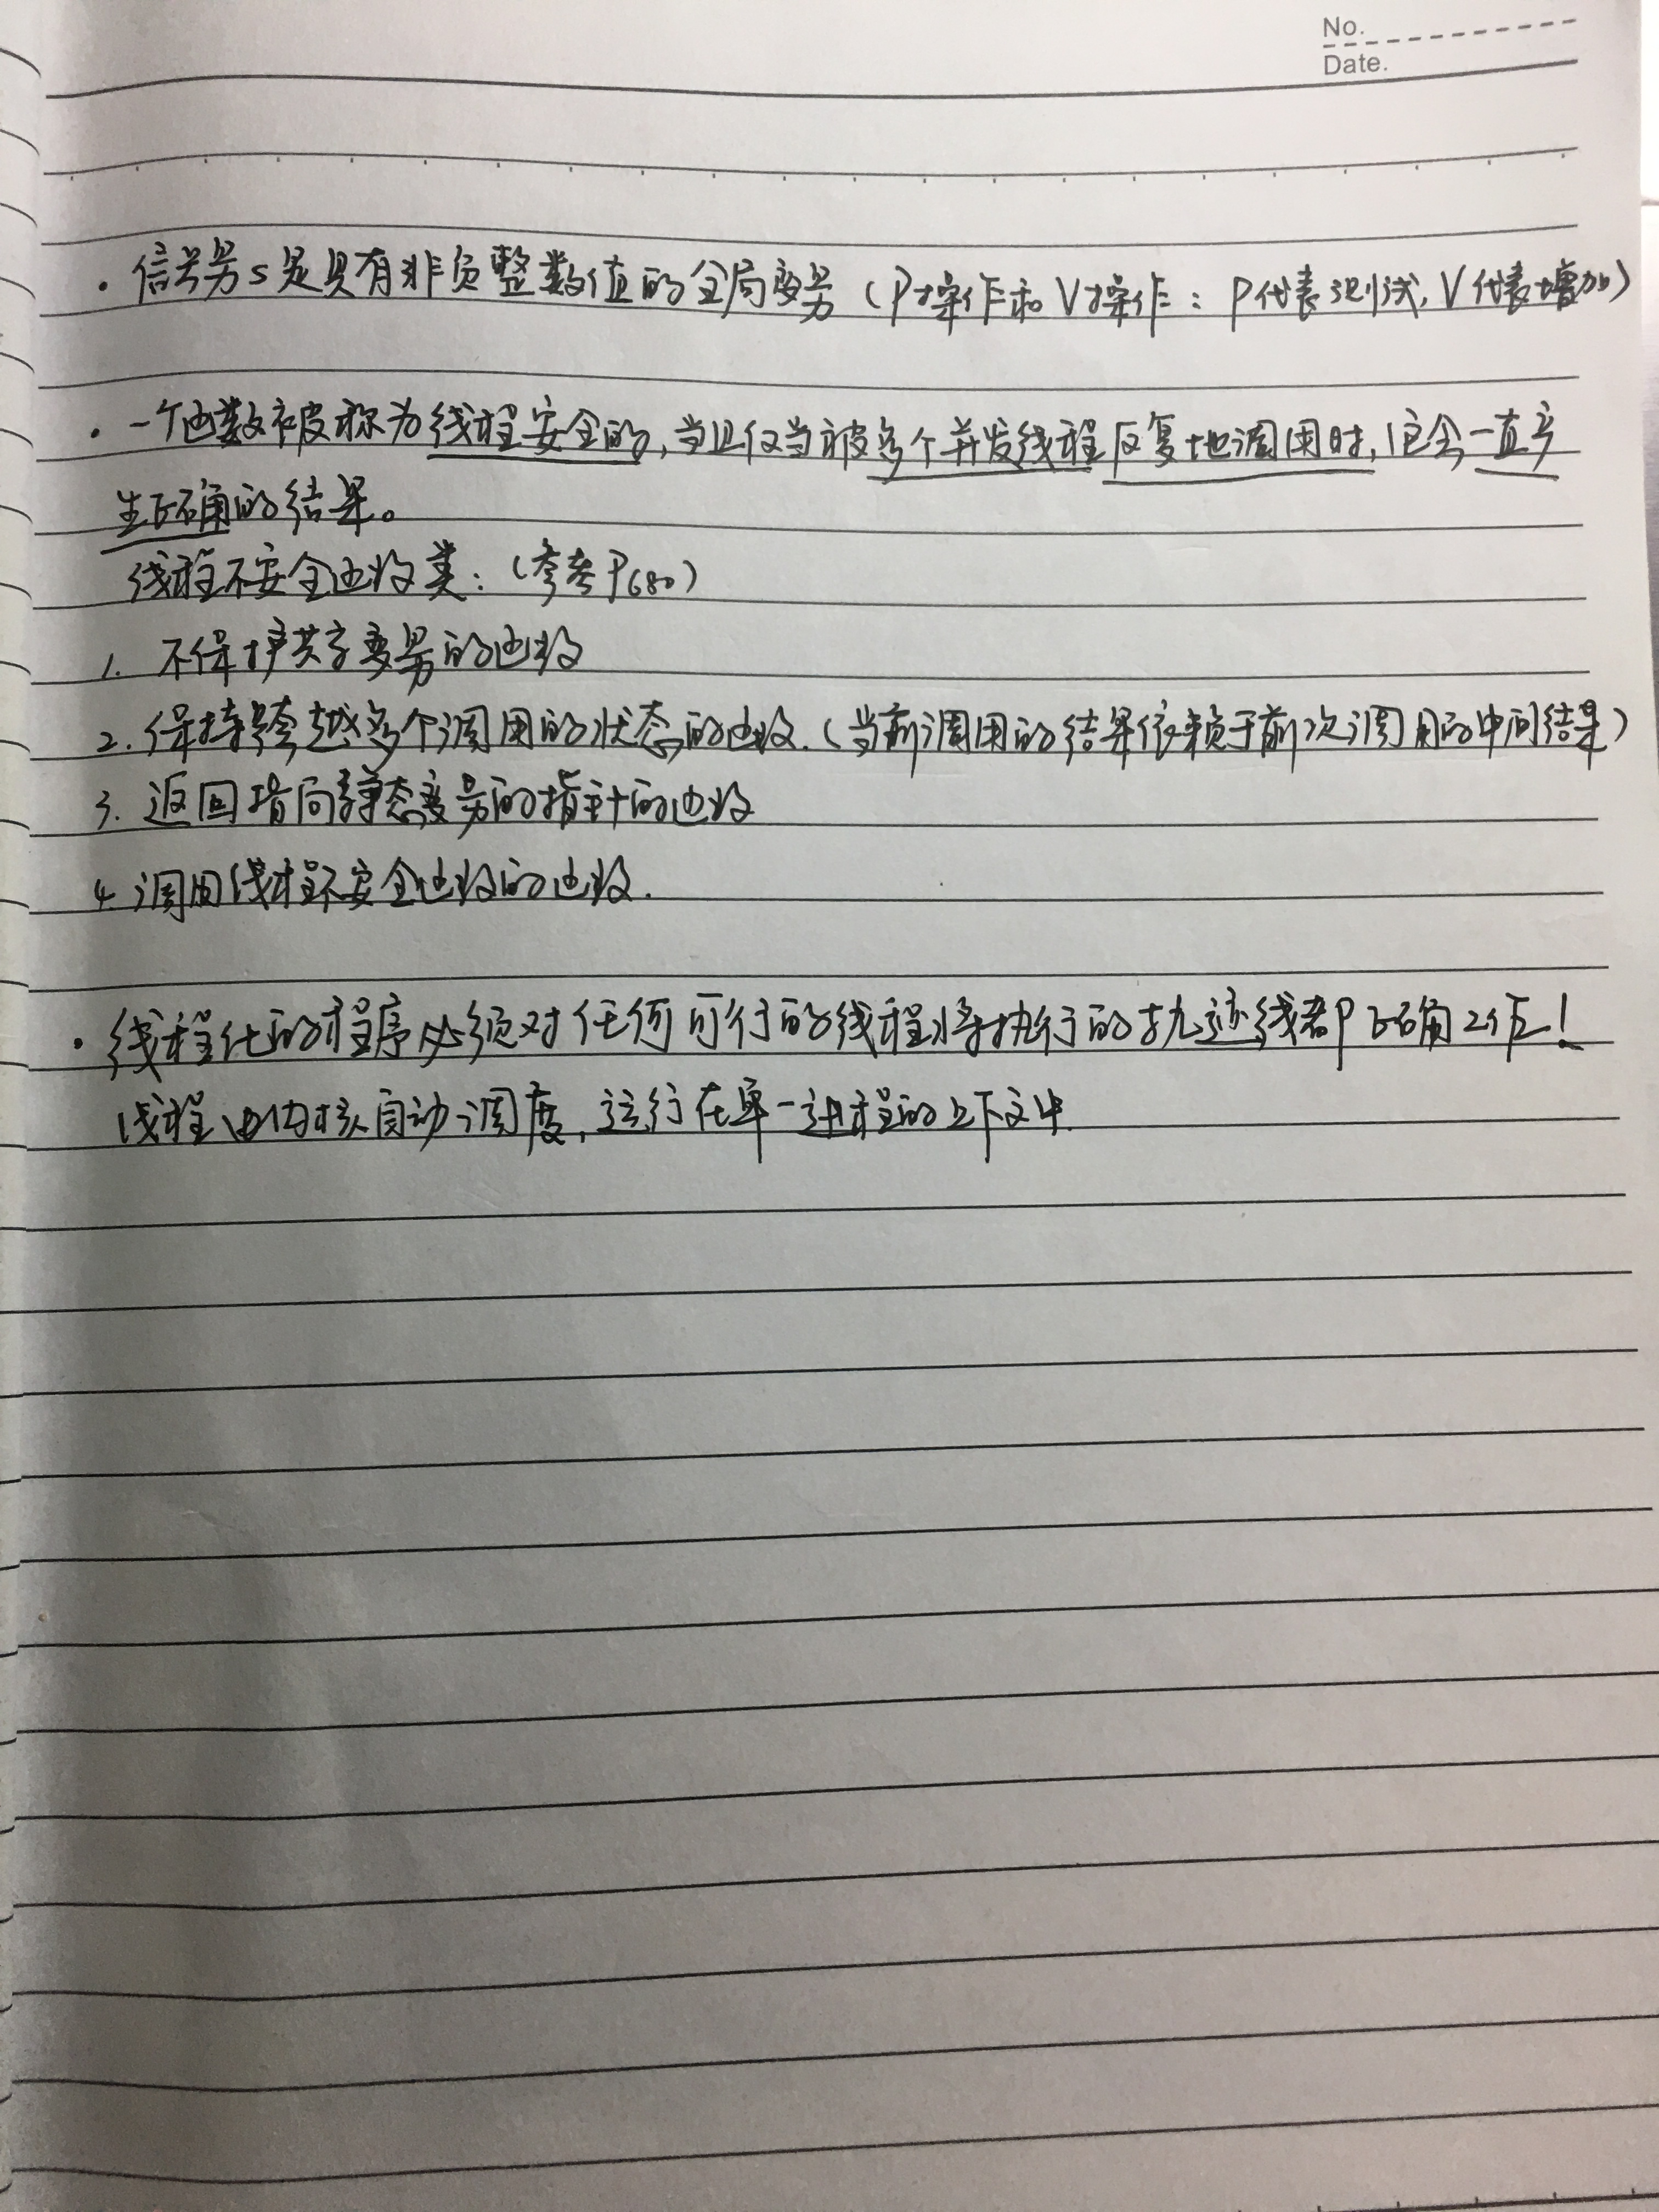 No.
Date.
· 信号量s是具有非负整数值的全局变量（P操作和V操作：P代表测试，V代表增加）
· 一个函数被称为线程安全的，当且仅当被多个并发线程反复地调用时，它会一直产
生正确的结果。
线程不安全函数类：（参考P680）
1. 不保护共享变量的函数
2. 保持跨越多个调用的状态的函数.（当前调用的结果依赖于前次调用的中间结果）
3. 返回指向静态变量的指针的函数
4. 调用线程不安全函数的函数.
· 线程化的程序必须对任何可行的线程将执行的轨迹线都正确工作！
线程由内核自动调度，运行在单一进程的上下文中.